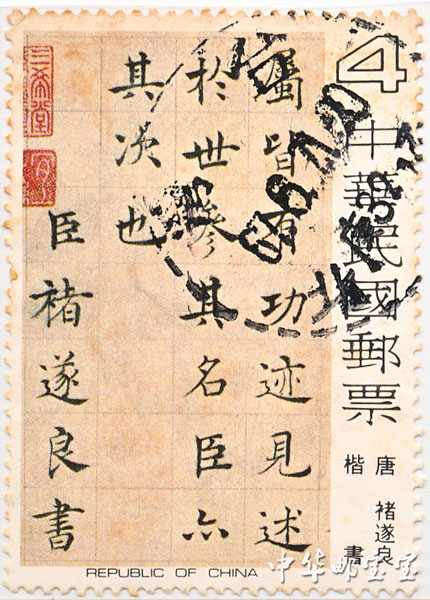 4
中華民國郵票
唐 褚遂良
楷 書
屬皆有功迹見述
於世叅其名臣亦
其次也
臣褚遂良書
三希堂
REPUBLIC OF CHINA
中华邮宝宝